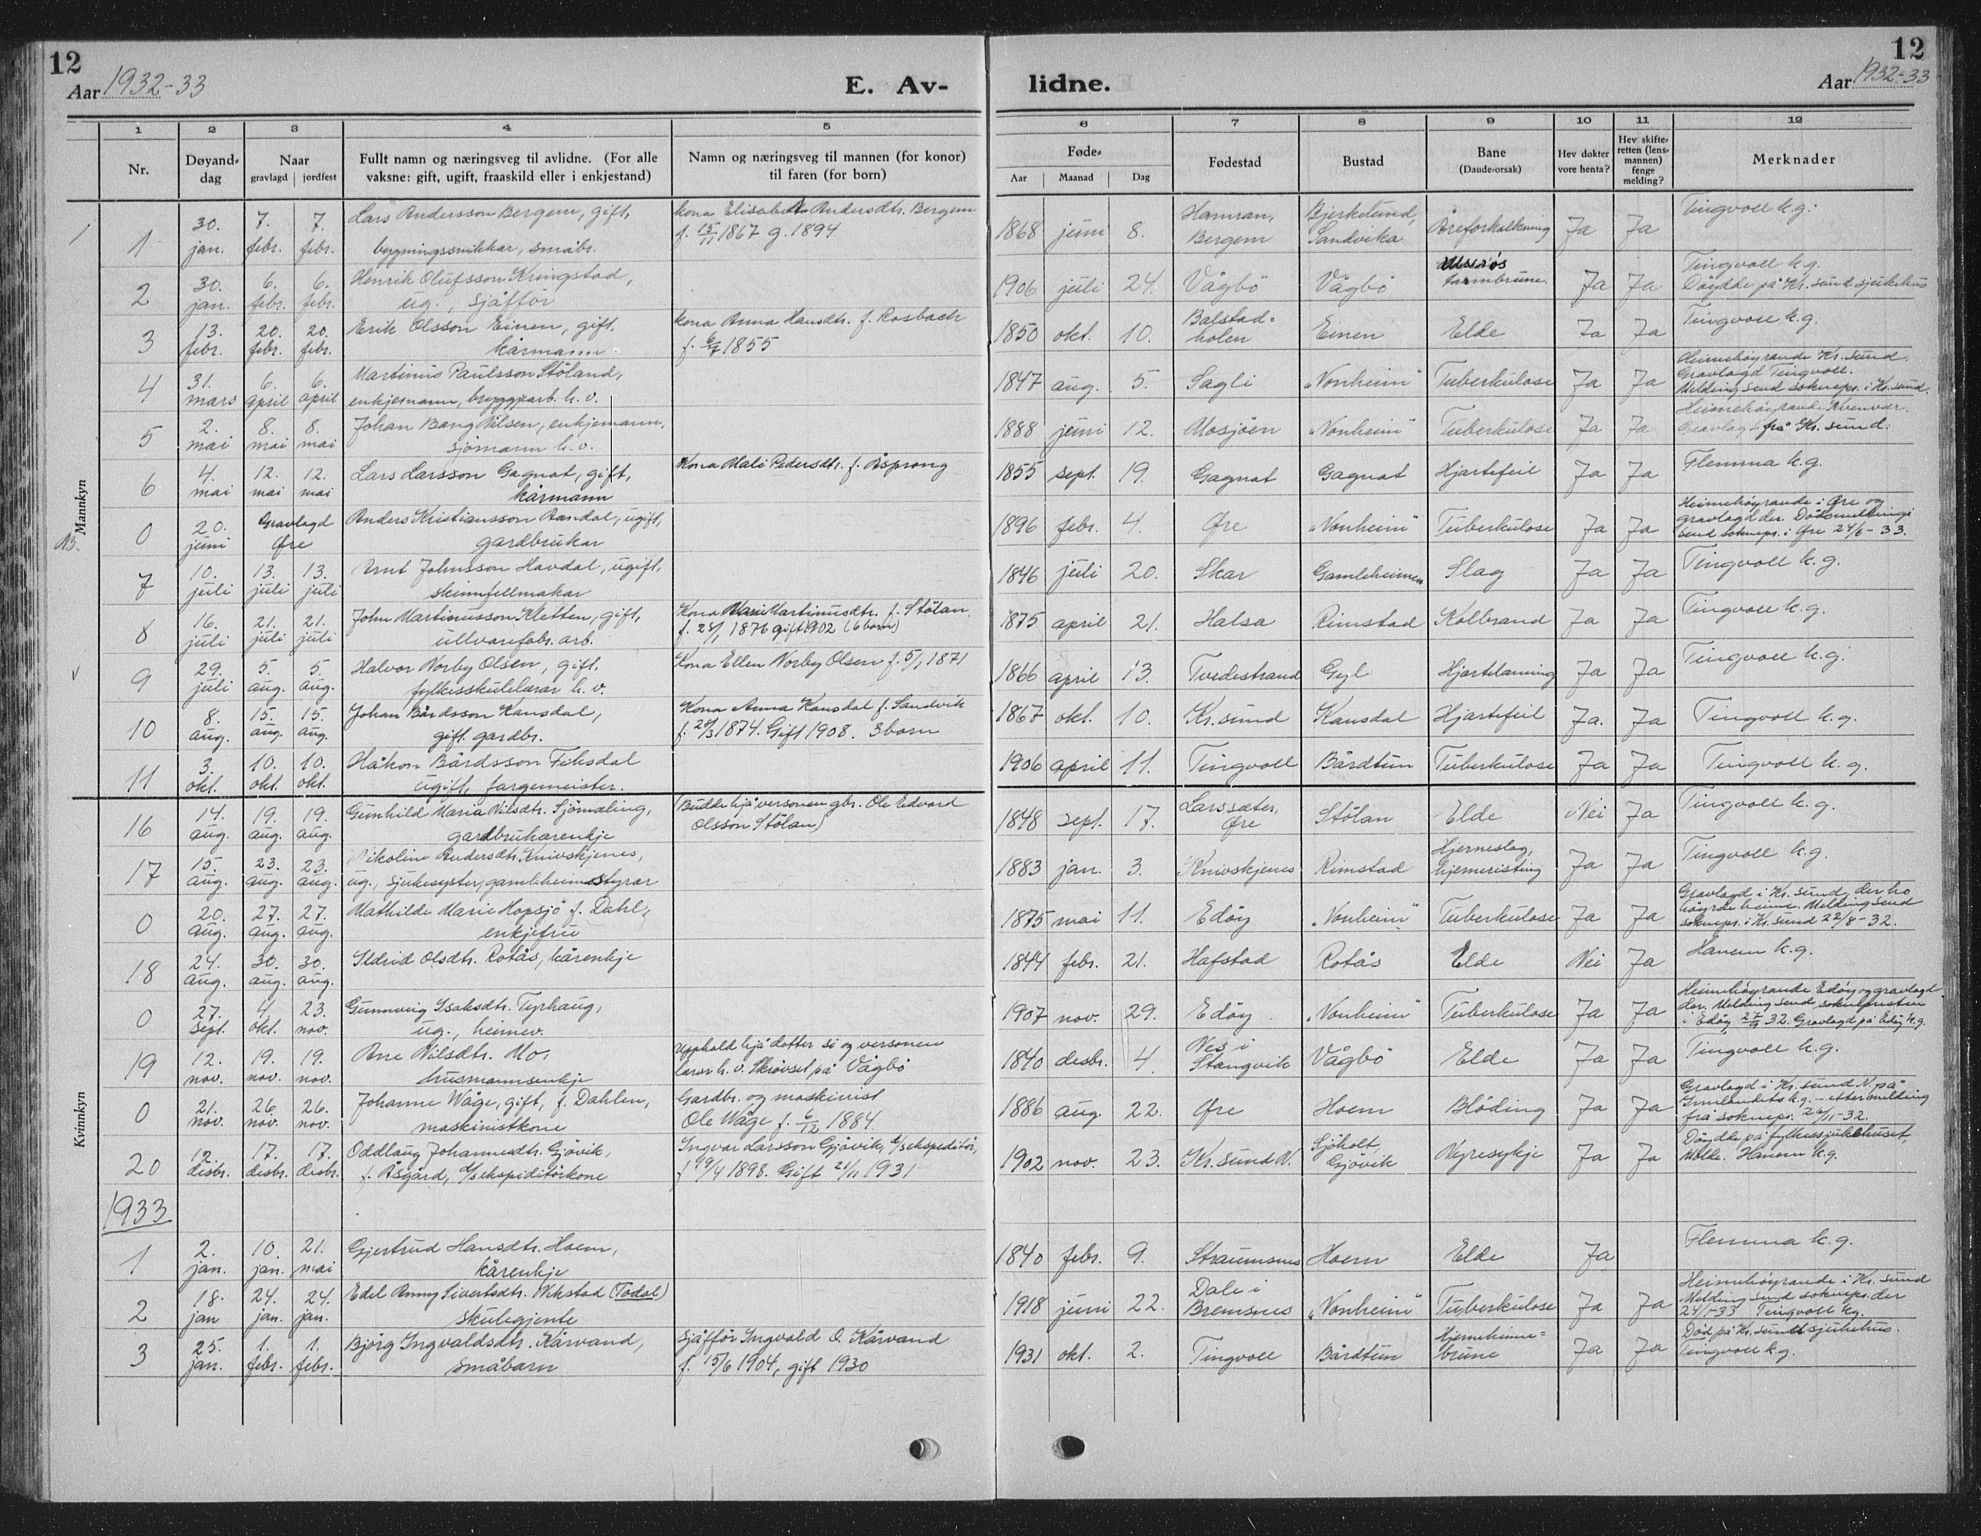 12
Aar 1932-33
E. Av-
lidne.
12
Aar 1932-33
1 2 3 4 5 6 7 8 9 10 11 12
Nr.
Døyand-
dag
Naar
gravlagd jordfest
Fullt namn og næringsveg til avlidne. (For alle
vaksne: gift, ugift, fraaskild eller i enkjestand)
Namn og næringsveg til mannen (for konor)
til faren (for born)
Føde-
Aar Maanad Dag
Fødestad
Bustad
Bane
(Daude-orsak)
Hev dokter
vore henta?
Hev skifte-
retten (lens-
mannen)
fenge
melding?
Merknader
Mannkyn
1 30. jan. 7. febr. 7. febr. Lars Andersson Bergem, gift, bygningssnikkar, småbr. Kona Elisabet Andersdtr. Bergem f. 15/11 1867 g. 1894 1868 juni 8. Hamran, Bergem Bjerkelund, Sandvika Åreforkalkning Ja Ja Tingvoll k.g.
2 30. jan. 6. febr. 6. febr. Henrik Olufsson Kringstad, ug., sjåffør 1906 juli 24. Vågbö Vågbö tarmbrune Ja Ja Tingvoll k.g. Döydde på Kr.sund sjukehus
3 13. febr. 20. febr. 20. febr. Erik Olsson Einen, gift, kårmann Kona Anna Hansdt. f. Rosbach f. 6/7 1855 1850 okt. 10. Balstad-holen Einen Elde Ja Ja Tingvoll k.g.
4 31. mars 6. april 6. april Martinus Paulsson Stöland, enkjemann, bryggjearb. h.v. 1847 aug. 5. Sagli "Vonheim" Tuberkulose Ja Ja Heimehöyrande Kr.sund. Gravlagd Tingvoll. Melding send soknepr. i Kr.sund.
5 2. mai 8. mai 8. mai Johan Bang Nilsen, enkjemann, sjömann h.v. 1888 juni 12. Mosjöen "Vonheim" Tuberkulose Ja Ja Heimehöyrande Kvenvær. Gravlagd frå Kr.sund.
6 4. mai 12. mai 12. mai Lars Larsson Gagnat, gift, kårmann Kona Mali Pedersdtr. f. Åsprong 1855 sept. 19. Gagnat Gagnat Hjartefeil Ja Ja Flemma k.g.
0 20. juni Gravlagd Øre Anders Kristiansson Aandal, ugift, gardbrukar 1896 febr. 4. Øre "Vonheim" Tuberkulose Ja Ja Heimehöyrande i Øre og gravlagd der. Dödsmelding send soknepr. i Øre 24/6-33.
7 10. juli 13. juli 13. juli Knut Johnsson Havdal, ugift, skinnfellmakar 1846 juli 20. Skar Gamleheimen Slag Ja Ja Tingvoll k.g.
8 16. juli 21. juli 21. juli John Martinusson Kletten, gift, ullvarefabr. arb. Kona Mari Martinusdtr. f. Stölan f. 28/1 1876 gift 1902 (6 born) 1875 april 21. Halsa Rimstad Kolbrand Ja Ja Tingvoll k.g.
9 29. juli 5. aug. 5. aug. Halvor Norby Olsen, gift, fylkesskulelærar h.v. Kona Ellen Norby Olsen f. 5/1 1871 1866 april 13. Tvedestrand Gyl Hjartelaming Ja Ja Tingvoll k.g.
10 8. aug. 15. aug. 15. aug. Johan Bårdsson Kansdal, gift. gardbr. Kona Anna Kansdal f. Sandvik f. 24/3 1874. Gift 1908. 3 born 1867 okt. 10. Kr.sund Kansdal Hjartefeil Ja. Ja Tingvoll k.g.
11 3. okt. 10. okt. 10. okt. Håkon Bårdsson Fiksdal ugift, fargemeister. 1906 april 11. Tingvoll Bårdtun Tuberkulose Ja Ja Tingvoll k.g.
Kvinnkyn
16 14. aug. 19. aug. 19. aug. Gunhild Maria Nilsdtr. Sjömæling, gardbrukarenkje (Budde hjå versonen gbr. Ole Edvard Olsson Stölan) 1848 sept. 17. Larssæter, Øre Stölan Elde Nei Ja Tingvoll k.g.
17 15. aug. 23. aug. 23. aug. Nikoline Andersdtr. Knivskjenes, ug., sjukesyster, gamleheimsstyrar 1883 jan. 3. Knivskjenes Rimstad Hjerneslag, hjerneristing Ja Ja Tingvoll k.g.
0 20. aug. 27. aug. 27. aug. Mathilde Marie Hopsjö f. Dahl, enkjefru 1875 mai 11. Edöy "Vonheim" Tuberkulose Ja Ja Gravlagd i Kr.sund, der ho höyrde heime. Melding send soknepr. i Kr.sund 22/8-32.
18 24. aug. 30. aug. 30. aug. Sldrid Olsdtr. Rotås, kårenkje 1844 febr. 21. Hafstad Rotås Elde Nei Ja Hanem k.g.
0 27. sept. 4. okt. 23. nov. Gunnveig Isaksdtr. Tyrhaug, ug., heimev. 1907 nov. 29. Edöy "Vonheim" Tuberkulose Ja Ja Heimehöyrande Edöy og gravlagd der. Melding send soknepresten i Edöy 27/9 32. Gravlagd på Edöy k.g.
19 12. nov. 19. nov. 19. nov. Ane Nilsdtr. Mo, husmannsenkje Upphald hjå dotter si og versonen lærar h.v. Skrövset på Vågbö 1840 desbr. 4. Nes i Stangvik Vågbö Elde Ja Ja Tingvoll k.g.
0 21. nov. 26. nov. 26. nov. Johanne Wåge, gift, f. Dahlen, maskinistkone Gardbr. og maskinist Ole Wåge f. 6/12 1884. 1886 aug. 22. Øre Hoem Blöding Ja Ja Gravlagd i Kr.sund N. på Grunlandets k.g. - etter melding frå soknepr. 26/11-32.
20 12. desbr. 17. desbr. 17. desbr. Oddlaug Johannesdtr. Gjövik, f. Åsgård, ekspeditörkone Ingvar Larsson Gjövik, ekspeditör, f. 19/4 1898. Gift 21/11 1931 1902 nov. 23. Kr.sund N. Sjöholt, Gjövik Nyresykje Ja Ja Döydde på fylkessjukehuset, Molde. Hanem k.g.
1933
1 2. jan. 10. jan. 21. mai Gjertrud Hansdtr. Hoem, kårenkje 1840 febr. 9. Straumsnes Hoem Elde Ja Flemma k.g.
2 18. jan 24. jan. 24. jan. Edel Anny Sivertsdtr. Wikstad (Todal) skulegjente 1918 juni 22. Dale i Bremsnes "Vonheim" Tuberkulose Ja Ja Heimehöyrande i Kr.sund Melding send soknepr. der 24/1-33 Tingvoll k.g.
3 25. jan. 1. febr. 1. febr. Björg Ingvaldsdtr. Kårvand, småbarn Sjåfför Ingvald O. Kårvand f. 15/6 1904, gift 1930 1931 okt. 2. Tingvoll Bårdtun Hjernehinne-brune Ja Ja Död på Kr.sund sjukehus. Tingvoll k.g.